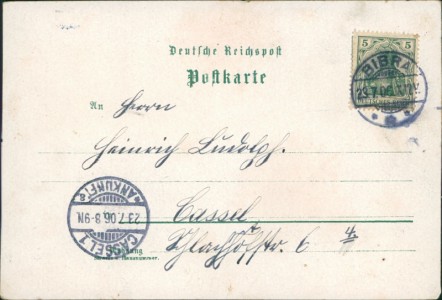 Deutsche Reichspost
Postkarte
5 5
BIBRA
23.7.06
An Herrn
Heinrich Ludolph.
Cassel
Schlachthofstr. 6
CASSEL 1
23.7.06.8-9N.
ANKUNFT